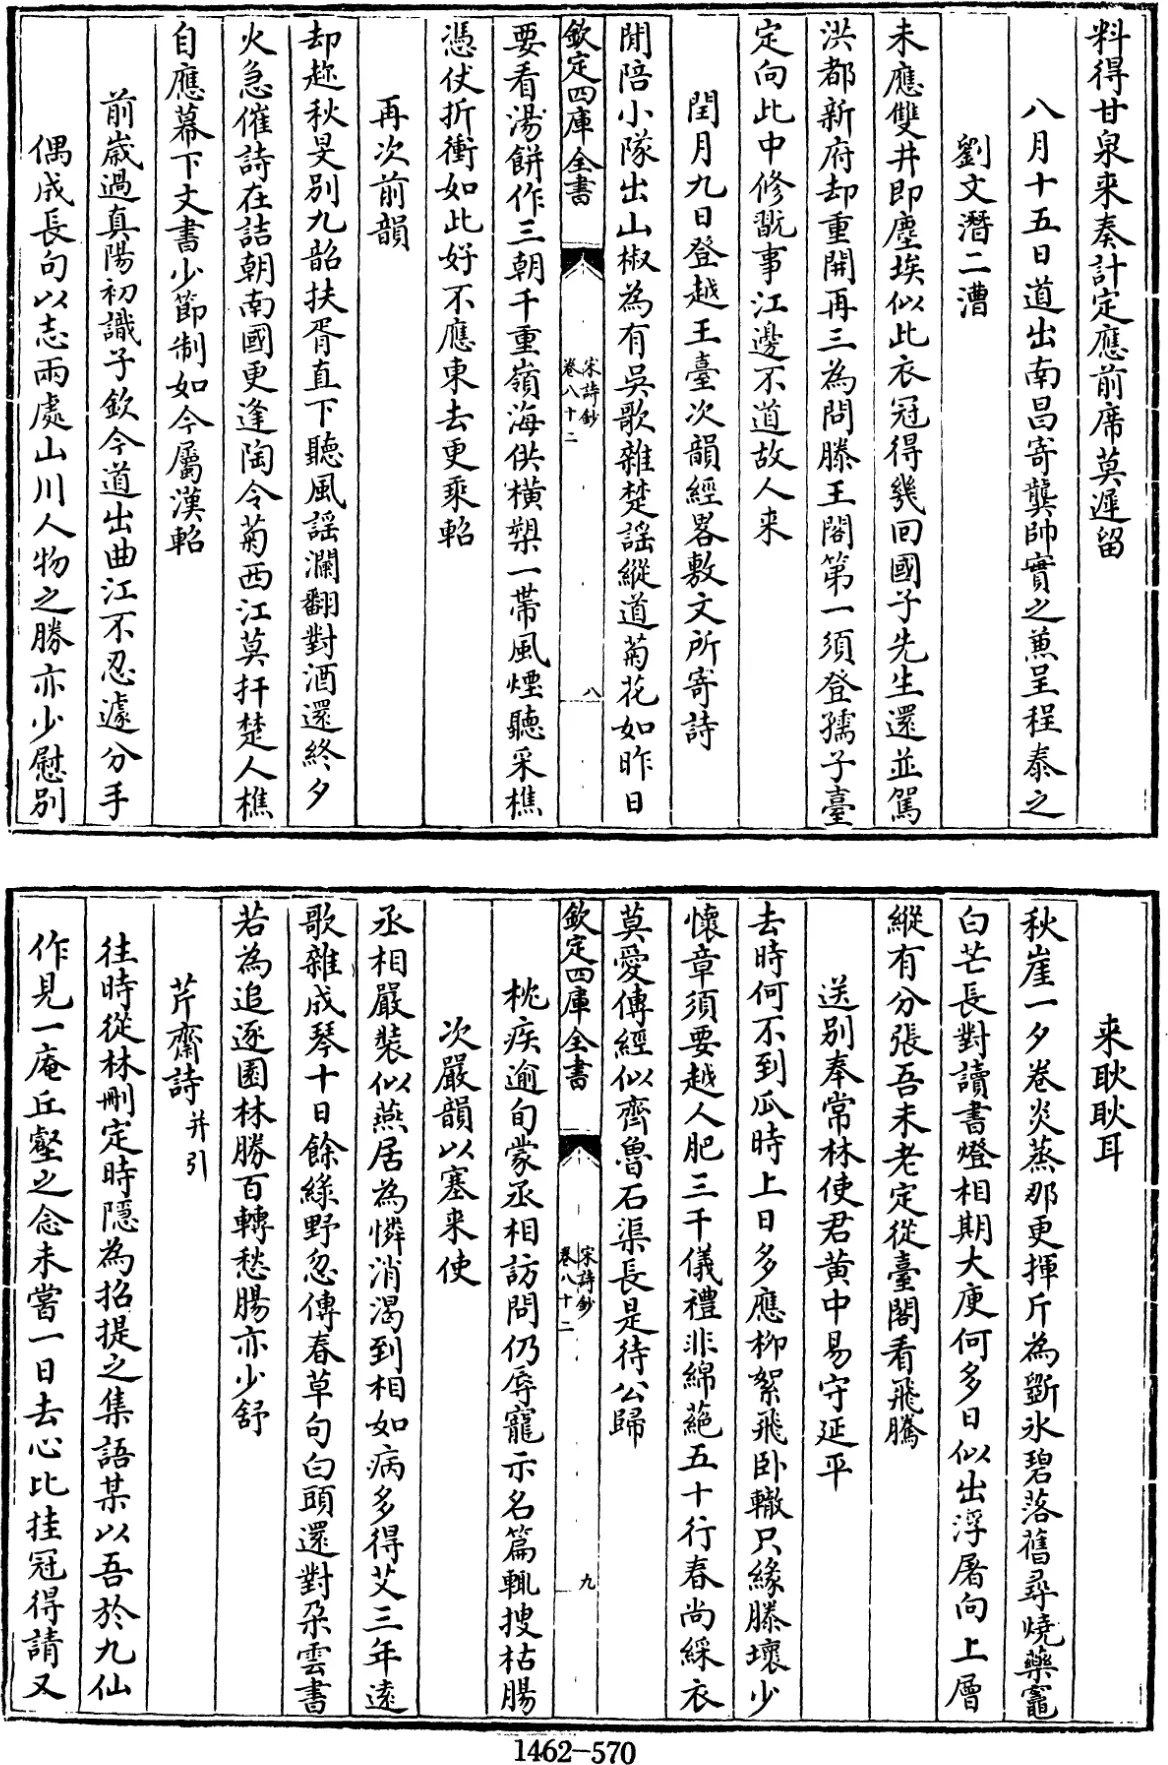 料得甘泉来奏計定應前席莫遲留
八月十五日道出南昌寄龔帥實之蕉呈程泰之
劉文潛二漕
未應雙井即塵埃似此衣冠得幾回國子先生還並駕
洪都新府却重開再三為問滕王閣第一須登孺子臺
定向此中修翫事江邊不道故人来
閏月九日登越王臺次韻經畧敷文所寄詩
閒陪小隊出山椒為有吳歌雜楚謡縱道菊花如昨日
欽定四庫全書
宋詩鈔
卷八十二
八
要看湯餅作三朝千重嶺海供横槊一帶風煙聽采樵
憑仗折衝如此好不應東去更乘軺
再次前韻
却趂秋旻別九韶扶胥直下聽風謡瀾翻對酒還終夕
火急催詩在詰朝南國更逢陶令菊西江莫扞楚人樵
自應幕下文書少節制如今屬漢軺
前嵗過真陽初識子欽今道出曲江不忍遽分手
偶成長句以志兩處山川人物之勝亦少慰别
来耿耿耳
秋崖一夕卷炎蒸那更揮斤為斵氷碧落舊尋燒藥竈
白芒長對讀書燈相期大庾何多日似出浮屠向上層
縱有分張吾未老定從臺閣看飛騰
送别奉常林使君黄中易守延平
去時何不到瓜時上日多應柳絮飛卧轍只緣滕壤少
懷章須要越人肥三千儀禮非綿蕝五十行春尚綵衣
莫愛傳經似齊魯石渠長是待公歸
欽定四庫全書
宋詩鈔
卷八十二
九
枕疾逾旬蒙丞相訪問仍辱寵示名篇輒搜枯腸
次嚴韻以塞来使
丞相嚴裝似燕居為憐消渴到相如病多得艾三年逺
歌雜成琴十日餘緑野忽傳春草句白頭還對朶雲書
若為追逐園林勝百轉愁腸亦少舒
芹齋詩并引
往時從林刪定時隱為招提之集語某以吾於九仙
作見一庵丘壑之念未嘗一日去心比挂冠得請又
1462-570